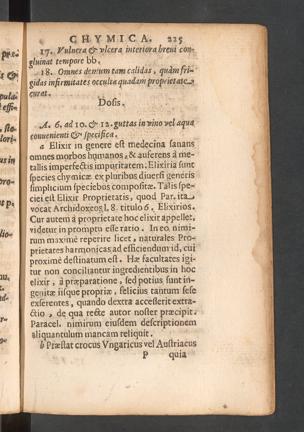 CHYMICA. 225
17. Vulnera & vlcera interiora breui con-
gluinat tempore bb.
18. Omnes demum tam calidas, quàm fri-
gidas infirmitates occulta quadam proprietate
curat.
Dosis.
A. 6. ad 10. & 12. guttas in vino vel aqua
conuenienti & specifica.
a Elixir in genere est medecina sanans
omnes morbos humanos, & auferens à me-
tallis imperfectis impuritatem. Elixiria sunt
species chymicæ ex pluribus diuersi generis
simplicium speciebus compositæ. Talis spe-
ciei est Elixir Proprietatis, quod Par. ita
vocat Archidoxeos l. 8. titulo 6. Elixirios.
Cur autem à proprietate hoc elixir appellet,
videtur in promptu esse ratio. In eo. nimi-
rum maximè reperire licet, naturales Pro-
prietates harmonicas ad efficiendum id, cui
proximè destinatum est. Hæ facultates igi-
tur non conciliantur ingredientibus in hoc
elixir, à præparatione, sed potius sunt in-
genitæ iisque propriæ, felicius tantum sese
exserentes, quando dextra accesserit extra-
ctio, de qua recte autor noster præcipit.
Paracel. nimirum eiusdem descriptionem
aliquantulum mancam reliquit.
b Præstat crocus Vngaricus vel Austriacus
P quia